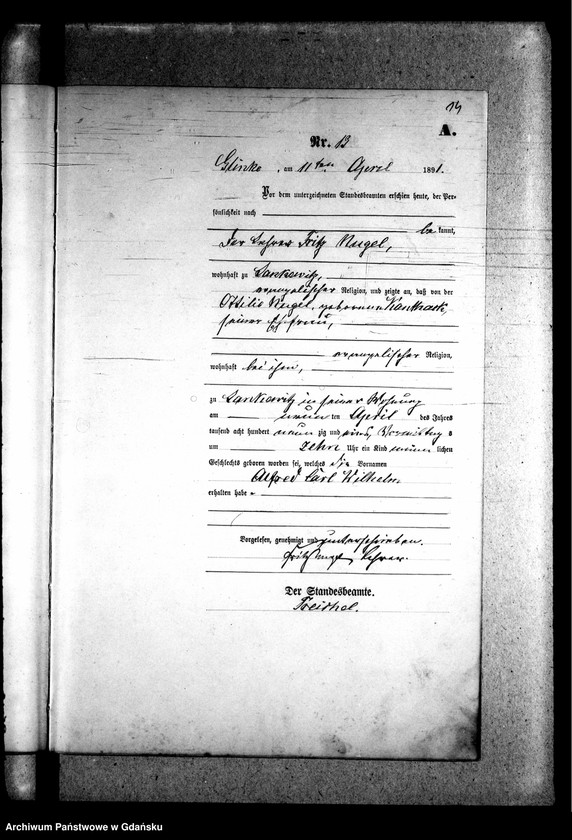 14
A.
Nr. 13
Glinke, am 11ten April 1891.
Vor dem unterzeichneten Standesbeamten erschien heute, der Per-
sönlichkeit nach
be kannt,
der Lehrer Fritz Nugel,
wohnhaft zu Lankewitz,
evangelischer Religion, und zeigte an, daß von der
Ottilie Nugel, geborenen Kanthack,
seiner Ehefrau,
evangelischer Religion,
wohnhaft bei ihm,
zu Lankewitz in seiner Wohnung
am neun ten April des Jahres
tausend acht hundert neun zig und eins, Vormittags
um zehn Uhr ein Kind männ lichen
Geschlechts geboren worden sei, welches die Vornamen
Alfred Carl Wilhelm
erhalten habe
Vorgelesen, genehmigt und unterschrieben.
Fritz Nugel, Lehrer.
Der Standesbeamte.
Archiwum Państwowe w Gdańsku